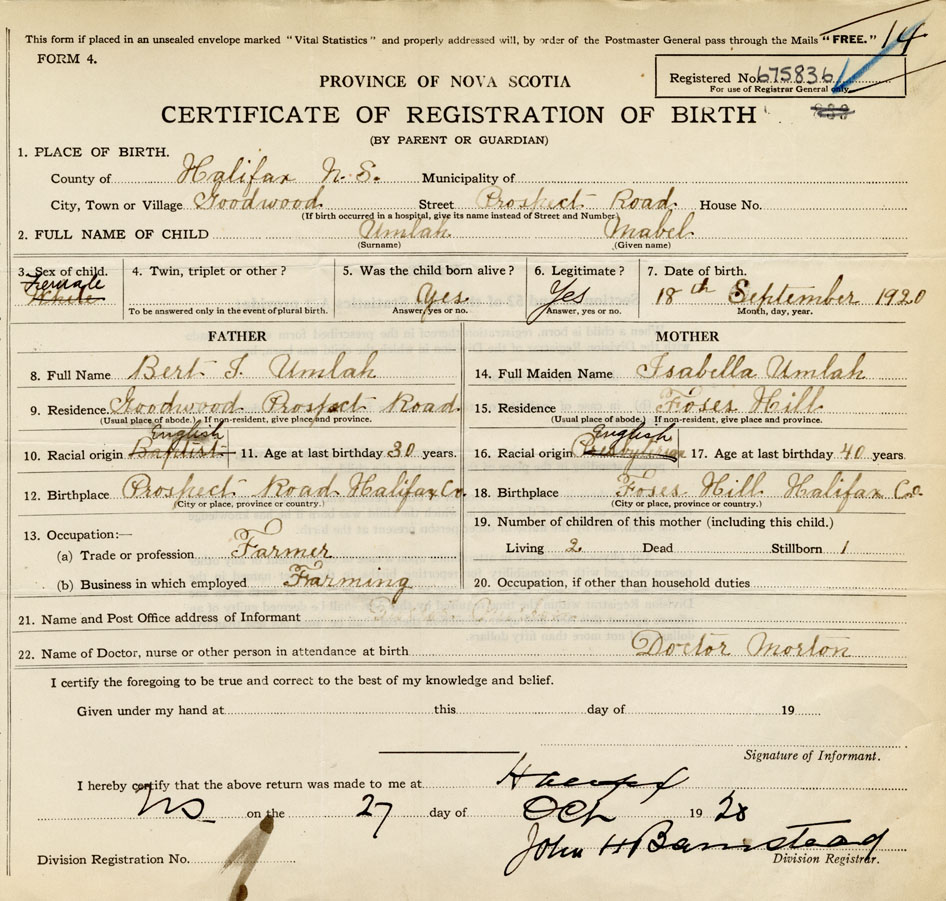 This form if placed in an unsealed envelope marked "Vital Statistics" and properly addressed will, by order of the Postmaster General pass through the Mails "FREE." 14
FORM 4.
Registered No. 675836
For use of Registrar General only
PROVINCE OF NOVA SCOTIA
CERTIFICATE OF REGISTRATION OF BIRTH
(BY PARENT OR GUARDIAN)
1. PLACE OF BIRTH.
County of Halifax N.S. Municipality of
City, Town or Village Goodwood Street Prospect Road House No.
(If birth occurred in a hospital, give its name instead of Street and Number)
2. FULL NAME OF CHILD Umlah Mabel
(Surname) (Given name)
3. Sex of child. Female White
4. Twin, triplet or other?
To be answered only in the event of plural birth.
5. Was the child born alive? Yes
Answer, yes or no.
6. Legitimate? Yes
Answer, yes or no.
7. Date of birth. 18th September 1920
Month, day, year.
FATHER
8. Full Name Bert J. Umlah
9. Residence. Goodwood Prospect Road
(Usual place of abode.) If non-resident, give place and province.
10. Racial origin Baptist English 11. Age at last birthday 30 years.
12. Birthplace Prospect Road Halifax Co.
(City or place, province or country.)
13. Occupation:—
(a) Trade or profession Farmer
(b) Business in which employed Farming
MOTHER
14. Full Maiden Name Isabella Umlah
15. Residence Foses Hill
(Usual place of abode.) If non-resident, give place and province.
16. Racial origin Presbyterian English 17. Age at last birthday 40 years.
18. Birthplace Foses Hill Halifax Co.
(City or place, province or country.)
19. Number of children of this mother (including this child.)
Living 2 Dead Stillborn 1
20. Occupation, if other than household duties
21. Name and Post Office address of Informant
22. Name of Doctor, nurse or other person in attendance at birth Doctor Morton
I certify the foregoing to be true and correct to the best of my knowledge and belief.
Given under my hand at this day of 19
Signature of Informant.
I hereby certify that the above return was made to me at Halifax
NS on the 27 day of Oct 1920
John H Barnstead
Division Registration No. Division Registrar.